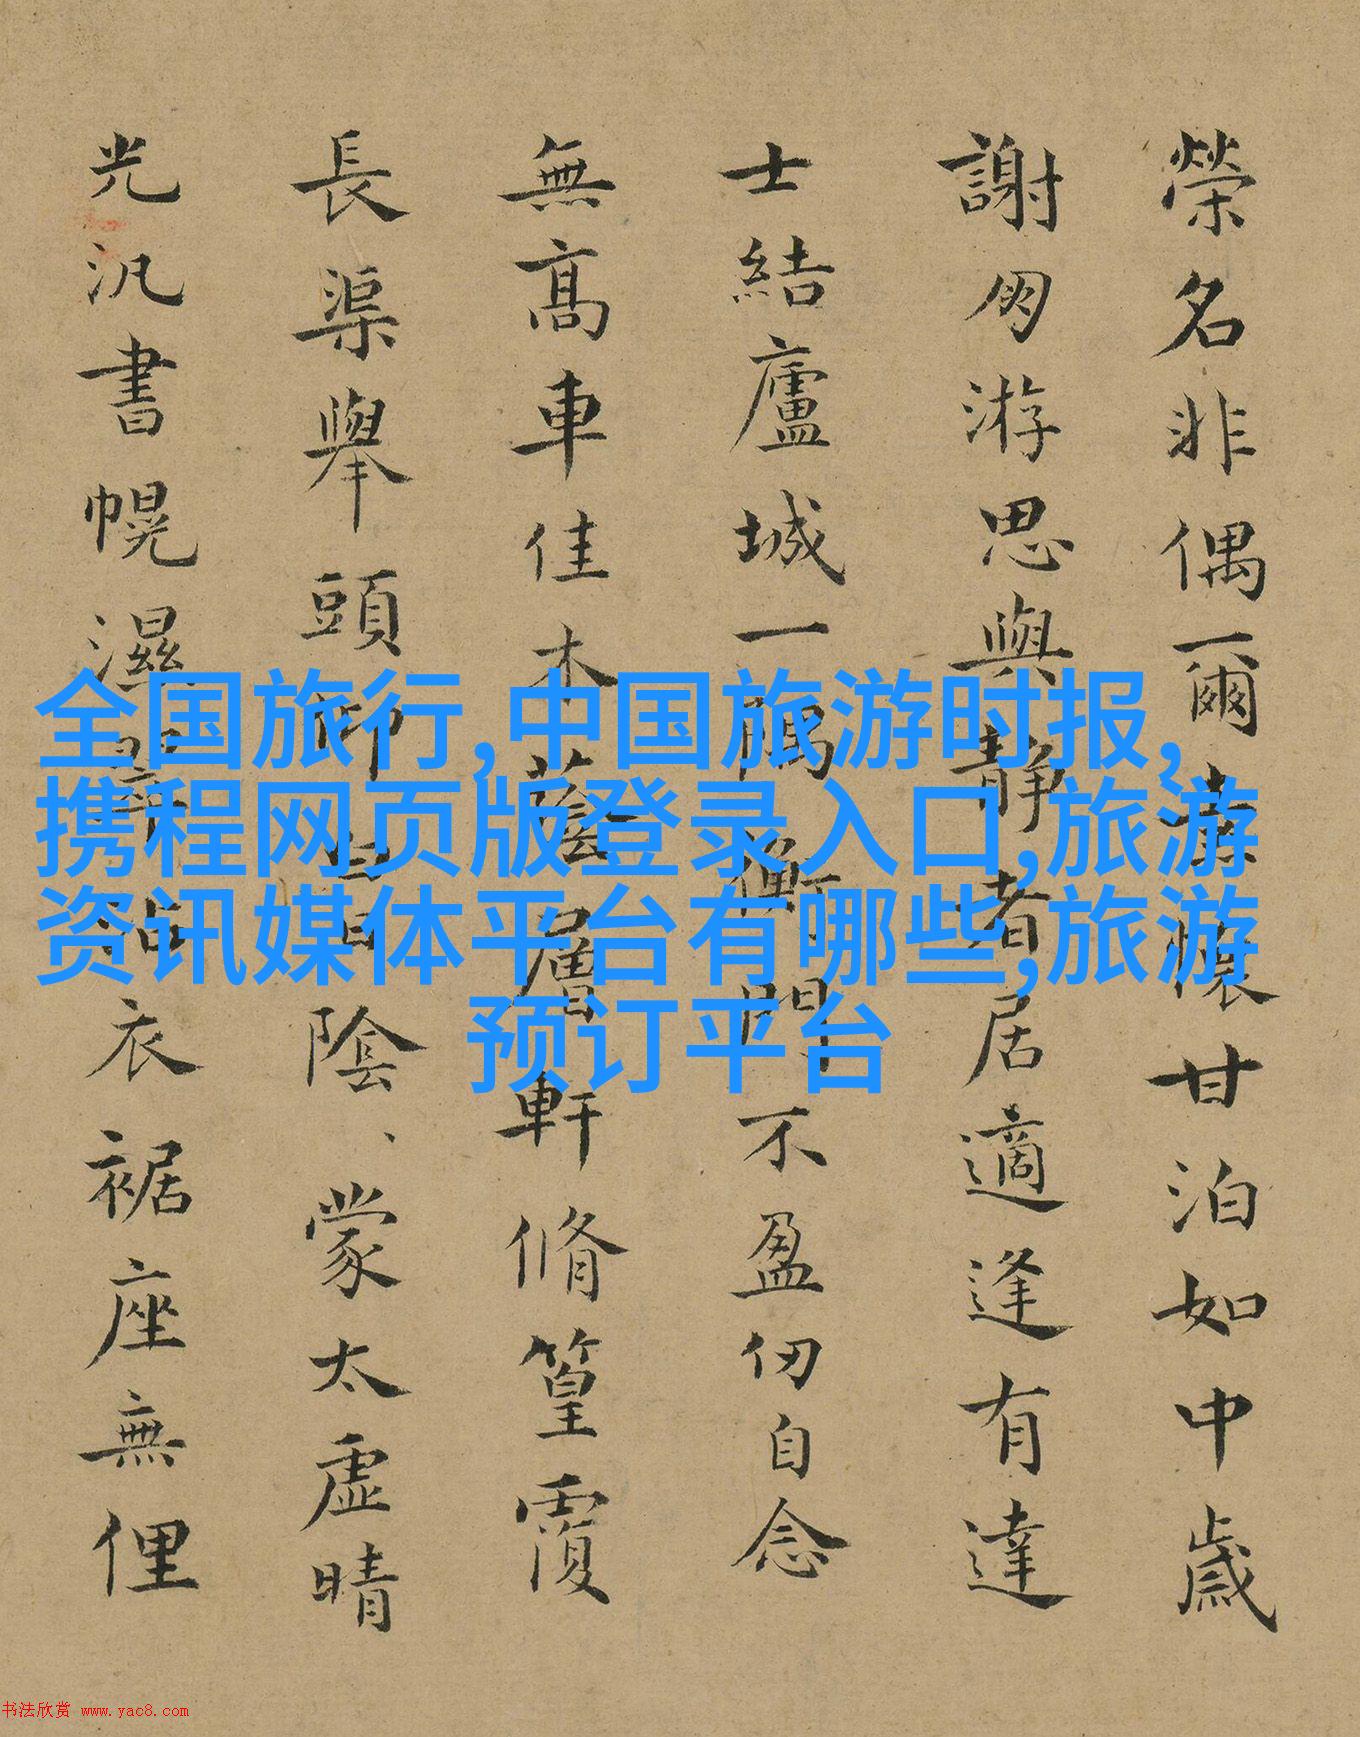 榮名非偶爾素懷甘泊如中歲
謝朋游思與静者居適逢有達
士結廬城一隅衡門不盈仞自念
無髙車佳木蔭層軒脩篁覆
長渠舉頭仰陰、蒙太虚晴
光汎書幌濕翠沾衣裾座無俚
全国旅行,中国旅游时报,
携程网页版登录入口,旅游
资讯媒体平台有哪些,旅游
预订平台
书法欣赏 www.yac8.com